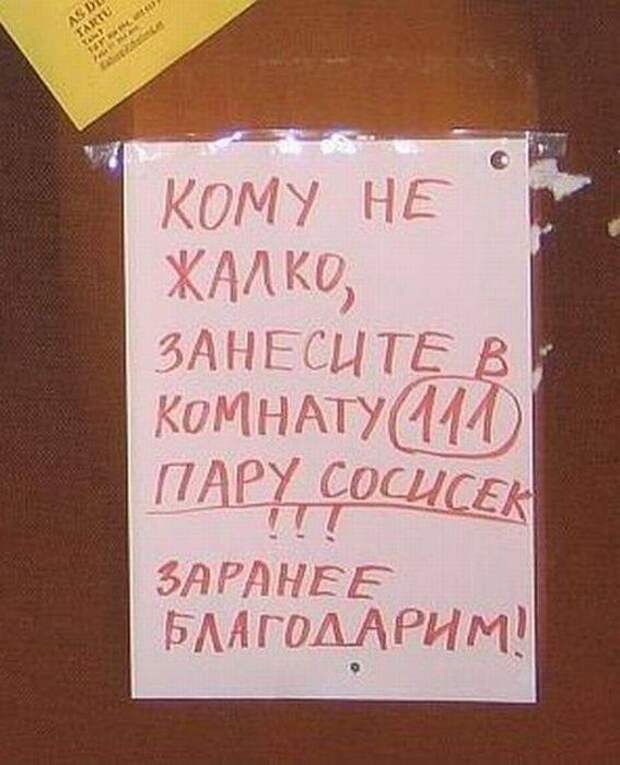 AS DE
TARTU
КОМУ НЕ
ЖАЛКО,
ЗАНЕСИТЕ В
КОМНАТУ 111
ПАРУ СОСИСЕК
!!!
ЗАРАНЕЕ
БЛАГОДАРИМ!